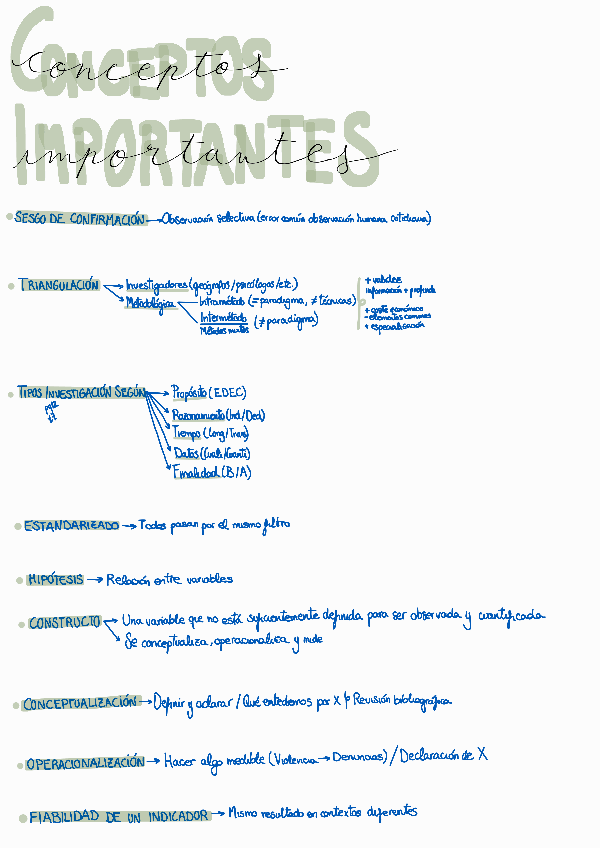 CONCEPTOS
conceptos
IMPORTANTES
importantes
SESGO DE CONFIRMACIÓN → Observación selectiva (error común observación humana cotidiana)
TRIANGULACIÓN → Investigadores (geógrafos/psicólogos/etc.)
→ Metodológica → Intramétodo (= paradigma, ≠ técnicas)
Intermétodo (≠ paradigma)
Métodos mixtos
+ validez
información + profunda
+ coste económico
- elementos comunes
+ especialización
TIPOS INVESTIGACIÓN SEGÚN → Propósito (EDEC)
→ Razonamiento (Ind/Ded)
→ Tiempo (Long/Tran)
→ Datos (Cuali/Cuanti)
→ Finalidad (B/A)
ESTANDARIZADO → Todos pasan por el mismo filtro
HIPÓTESIS → Relación entre variables
CONSTRUCTO → Una variable que no está suficientemente definida para ser observada y cuantificada
→ Se conceptualiza, operacionaliza y mide
CONCEPTUALIZACIÓN → Definir y aclarar / Qué entedemos por X Revisión bibliográfica
OPERACIONALIZACIÓN → Hacer algo medible (Violencia → Denuncias) / Declaración de X
FIABILIDAD DE UN INDICADOR → Mismo resultado en contextos diferentes